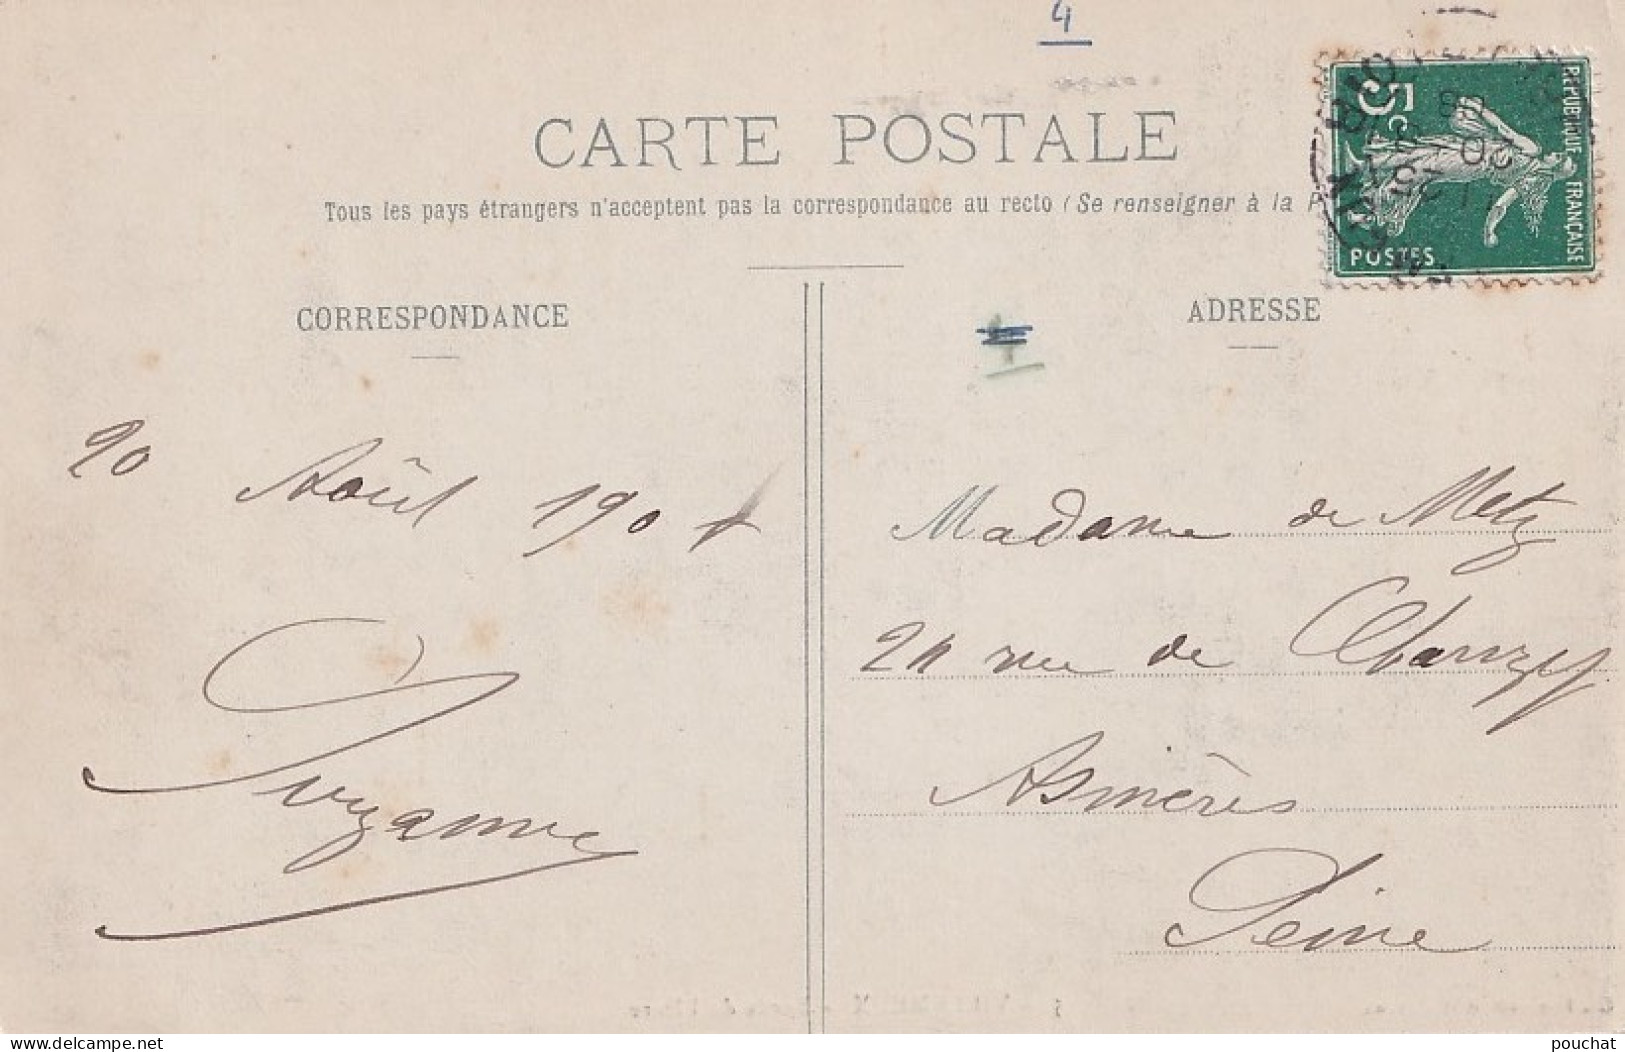 4
CARTE POSTALE
Tous les pays étrangers n'acceptent pas la correspondance au recto (Se renseigner à la P
5c
REPUBLIQUE FRANÇAISE
POSTES
CORRESPONDANCE
ADRESSE
20 Août 190
Suzanne
Madame de Metz
rue de
Asnières
Seine
delcampe.net
pouchat